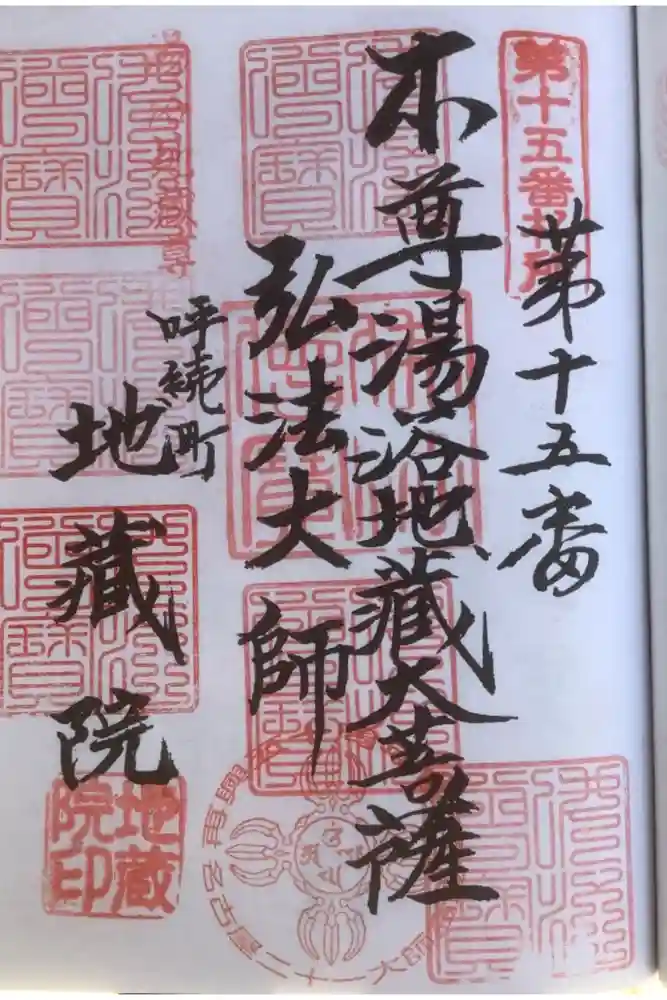 第十五番
第十五番札所
本尊湯浴地蔵大菩薩
弘法大師
呼続町
地蔵院
佛法僧寳
地蔵院印